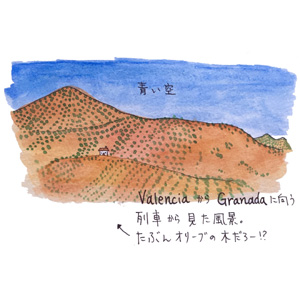 青い空
Valencia から Granada に向う
列車から見た風景。
たぶんオリーブの木だろー!?